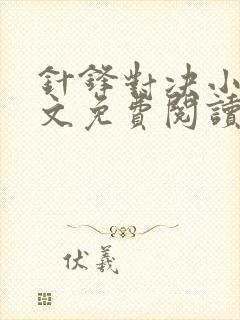 針鋒對決小
文免費閱讀
伏羲